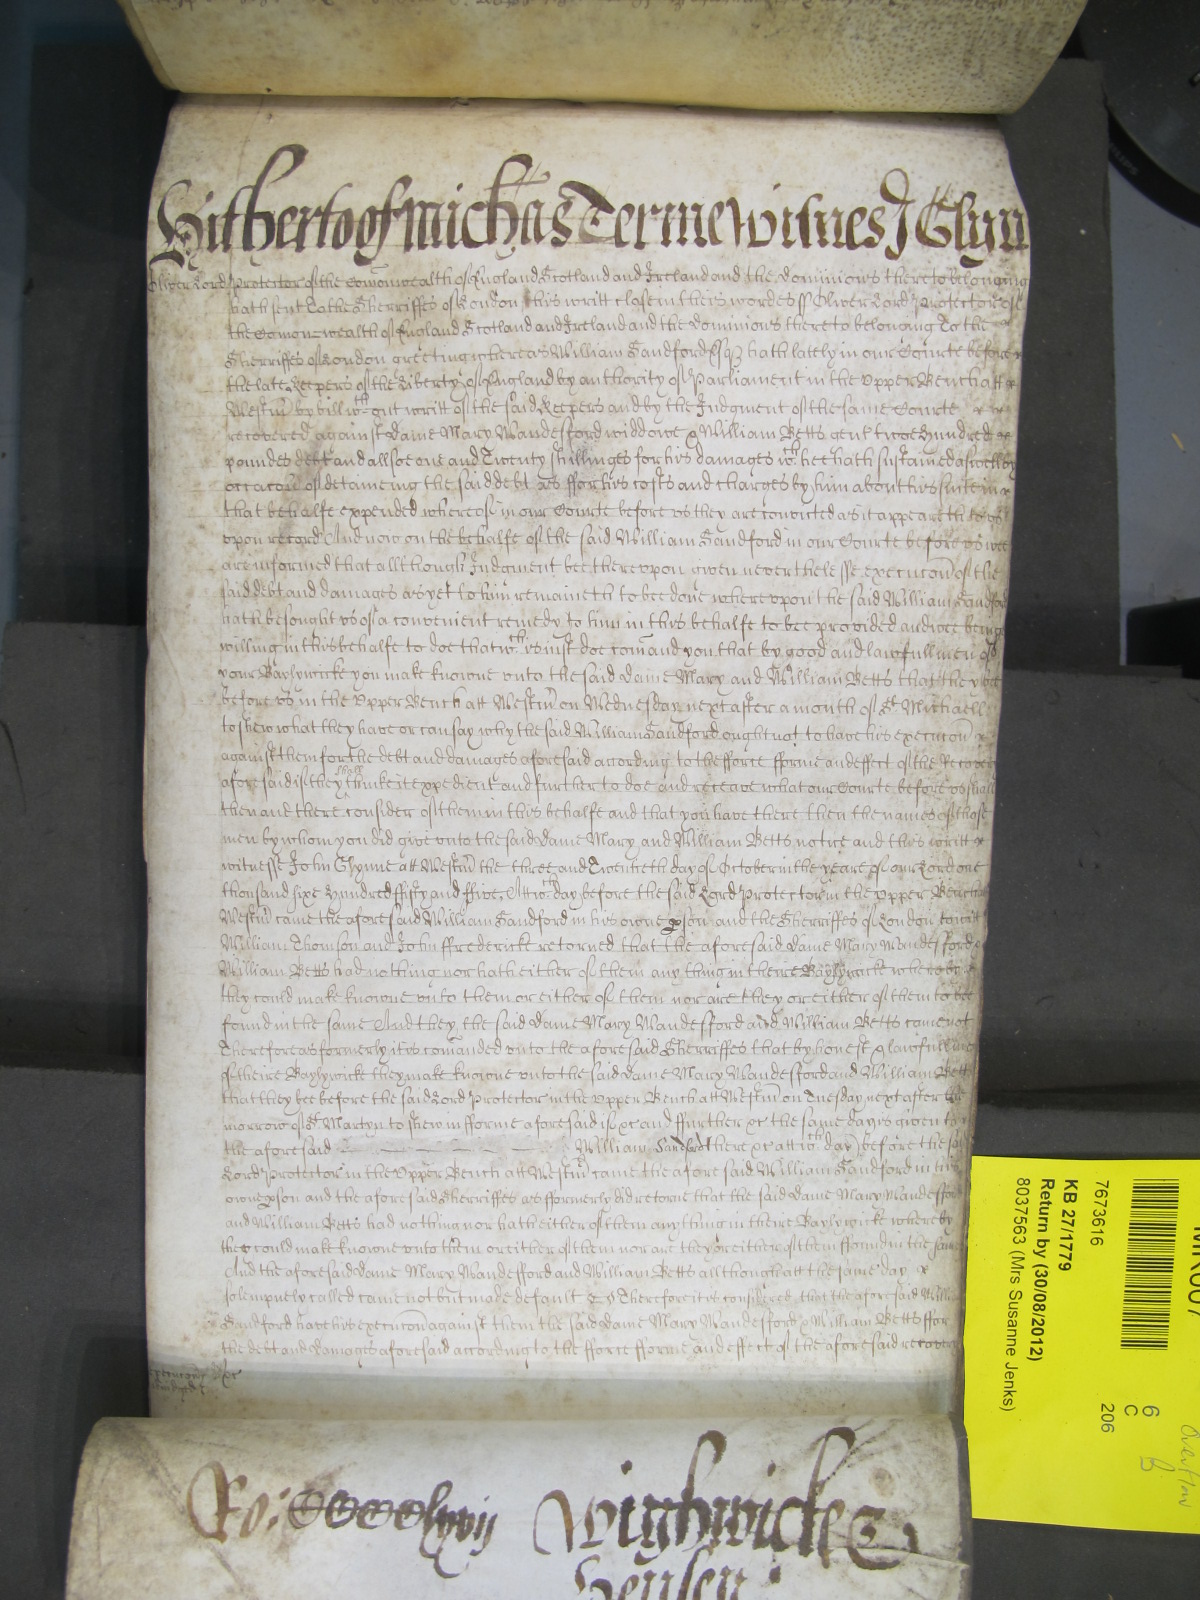 Hitherto of Mich'as Terme Wisnes J Glyn
Oliver Lord Protector of the Comonwealth of England Scotland and Ireland and the dominions thereto belonging
hath sent to the Sherriffes of London this writt close in theis wordes ss Oliver Lord Protector of
the Comon=wealth of England Scotland and Ireland and the dominions thereto belonging To the
Sherriffes of London greeting whereas William Sandford Esq hath lately in our Courte before
the late Keepers of the Liberty of England by authority of Parliament in the Upper Bench att
Westm by bill wthout writt of the said Keepers and by the Judgment of the same Courte
recovered against Dame Mary Wandesford widdowe & William Betts gent twoe hundred
poundes debt and allsoe one and Twenty shillinges for his damages wch hee hath susteined aswell by
occacon of deteineing the said debt as ffor his costs and charges by him about his suite in
that behalfe expended whereof in our Courte before us they are convicted as it appeareth to us
upon record And now on the behalfe of the said William Sandford in our Courte before us wee
are informed that allthough Judgment bee thereupon given neverthelesse execucon of the
said debt and damages as yet to him remaineth to bee done whereupon the said William Sandford
hath besought us of a convenient remedy to him in this behalfe to bee provided and wee being
willing in this behalfe to doe that wch is iust doe comand you that by good and lawfull men of
your Baylywicke you make knowne unto the said dame Mary and William Betts that they bee
before us in the Upper Bench att Westm on Wednesday next after a month of St Michaell
to shew what they have or can say why the said William Sandford ought not to have his execucon
against them for the debt and damages aforesaid according to the fforce fforme and effect of the Recovery
aforesaid if they shall thinke it expedient and further to doe and receave what our Courte before us shall
then and there consider of them in this behalfe and that you have there then the names of those
men by whom you did give unto the said dame Mary and William Betts notice and this writt
witnesse John Glynne att Westm the three and Twentieth day of October in the yeare of our Lord one
thousand sixe hundred ffifty and ffive. Att wch day before the said Lord Protector in the Upper Bench att
Westm came the aforesaid William Sandford in his owne pson and the Sherriffes of London to witt
William Thomson and John ffrederick retorned that the aforesaid dame Mary Wandesford
William Betts had nothing nor hath either of them any thing in theire Baylywicke whereby
they could make knowne unto them or either of them nor are they or either of them to bee
found in the same And they, the said dame Mary Wandesfford and William Betts came not
Therefore as formerly it is comanded unto the aforesaid Sherriffes that by honest & lawfull men
of theire Baylywicke they make knowne unto the said dame Mary Wandesfford and William Betts
that they bee before the said Lord Protector in the Upper Bench att Westm on Tuesday next after the
morrow of St Martyn to shew in fforme aforesaid if &c and ffurther &c the same day is given to
the aforesaid William Sandford there &c att wch day before the said
Lord Protector in the Upper Bench att Westm came the aforesaid William Sandford in his
owne pson and the aforesaid Sherriffes as fformerly did retorne that the said dame Mary Wandesfford
and William Betts had nothing nor hath either of them any thing in theire Baylywicke whereby
they could make knowne unto them or either of them nor are they or either of them ffound in the same
And the aforesaid dame Mary Wandesfford and William Betts allthough att the same day
solempnely called came not but made default Therefore it is considered that the aforesaid William
Sandford have his execucon against them the said dame Mary Wandesford & William Betts ffor
the debt and damages aforesaid according to the fforce fforme and effect of the aforesaid recovery
Ro: CCCClxvij Wighwicke
Hensley
7673616
KB 27/1779
Return by (30/08/2012)
8037563 (Mrs Susanne Jenks)
6
C
206
Overflow